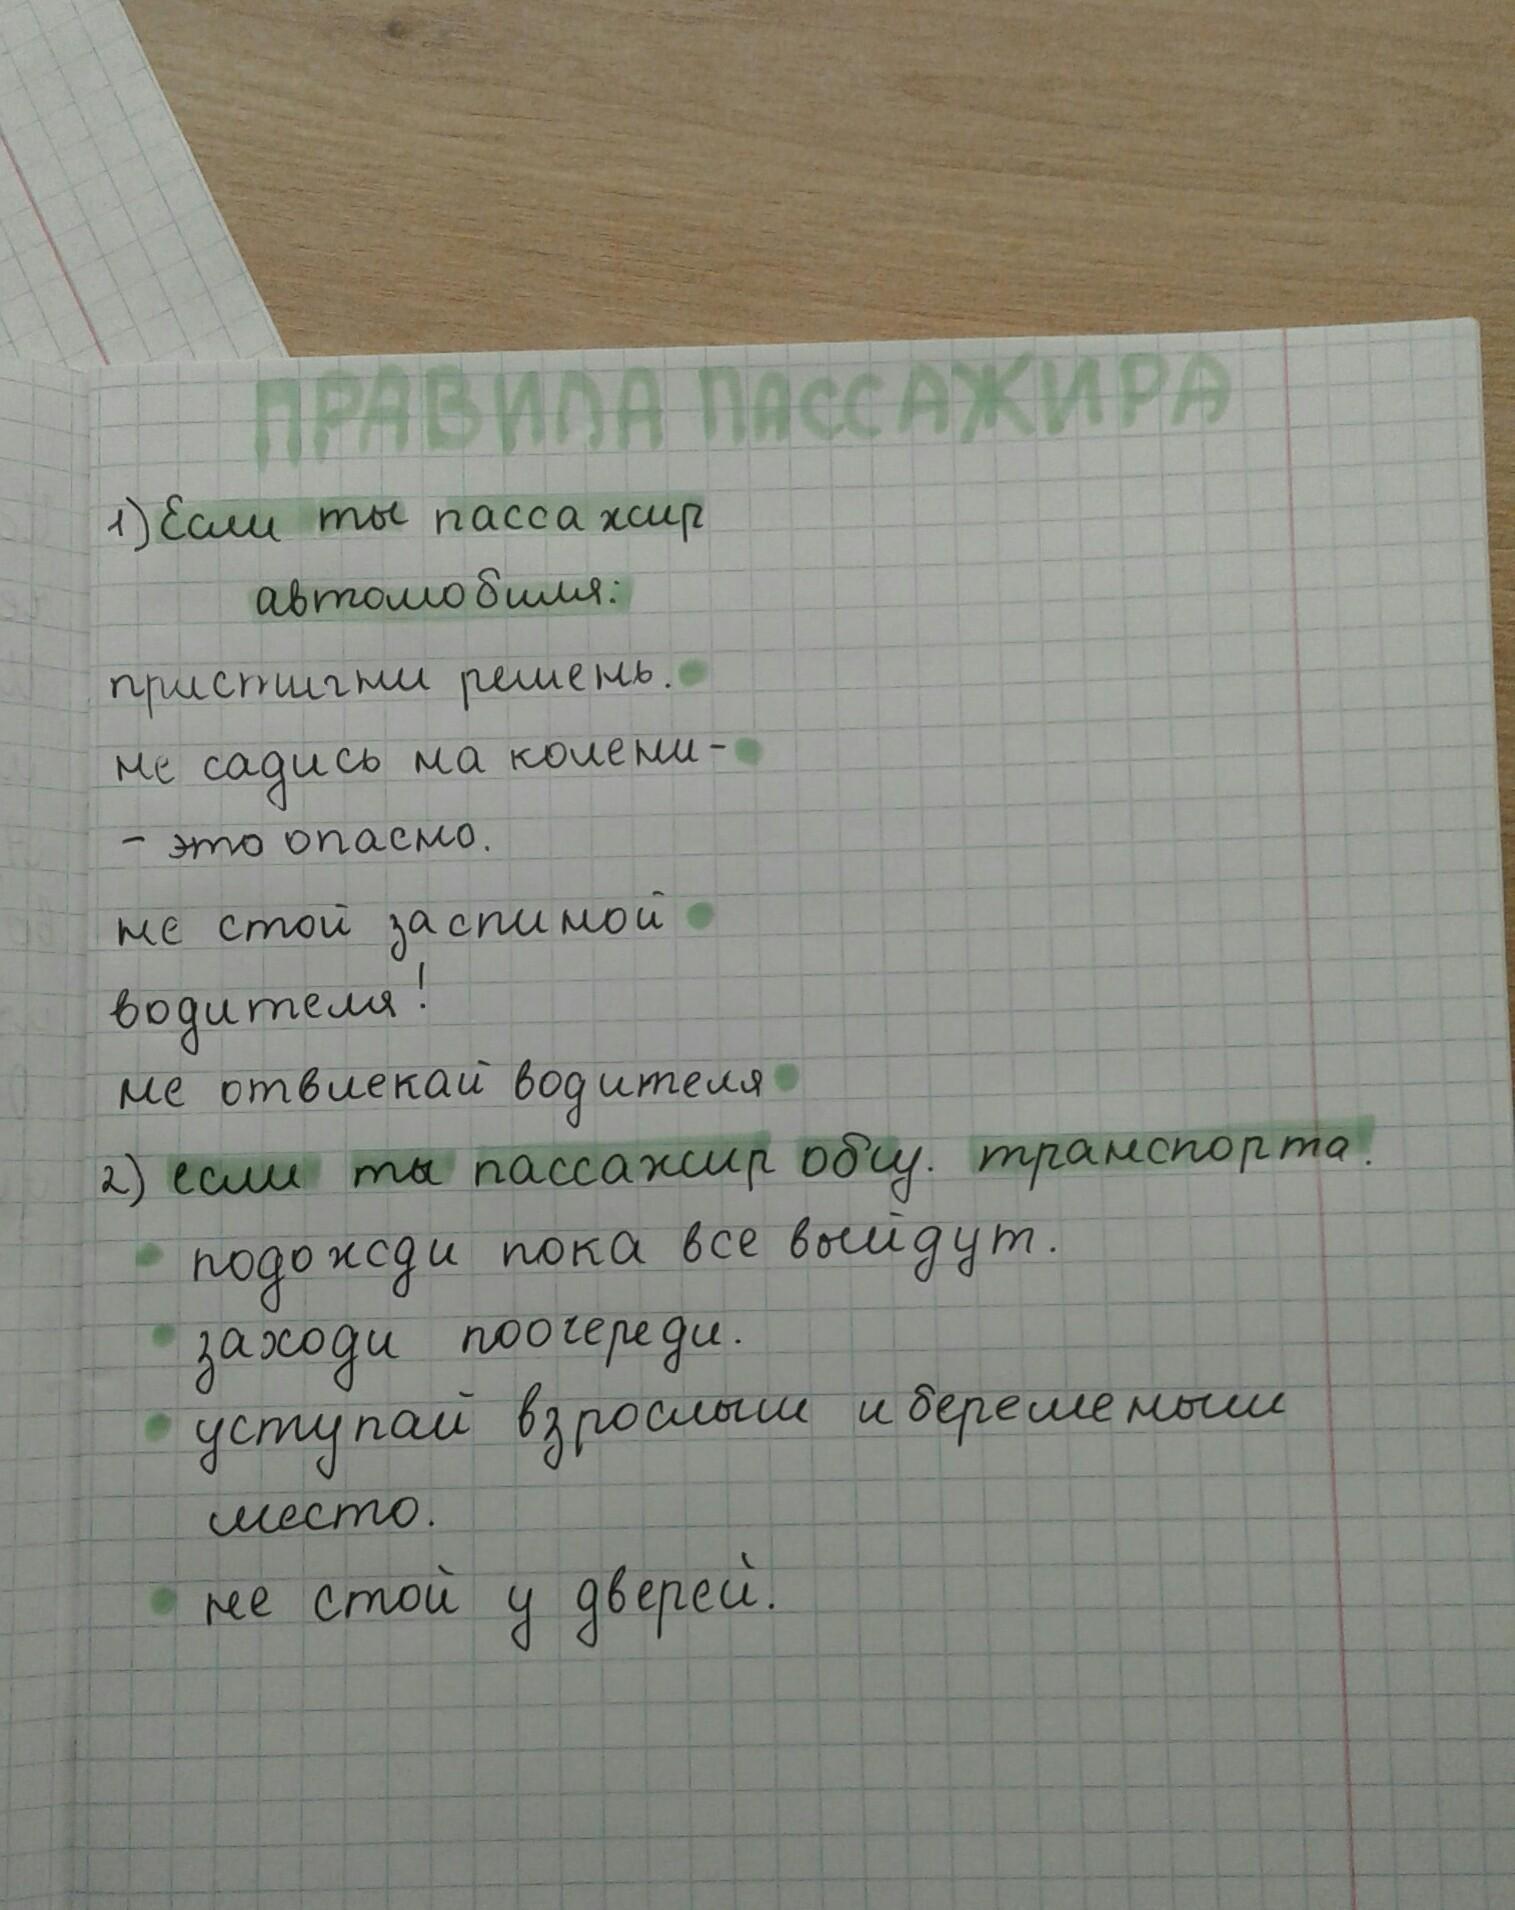 ПРАВИЛА ПАССАЖИРА
1) Если ты пассажир
автомобиля:
пристигни решень.
не садись на колени-
- это опасно.
не стой за спиной
водителя!
не отвлекай водителя
2) если ты пассажир общ. транспорта.
подожди пока все выйдут.
заходи поочереди.
уступай взрослым и беременым
место.
не стой у дверей.